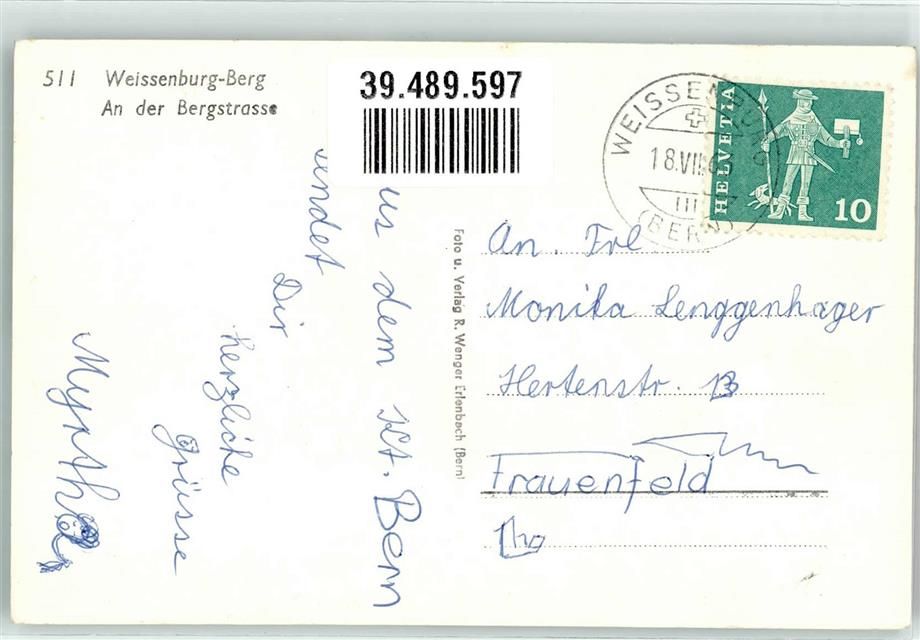 511 Weissenburg-Berg
An der Bergstrasse
39.489.597
WEISSENBURG
18.VII.63
(BERN)
HELVETIA
10
us dem Kt. Bern
sendet
Dir
herzliche
Grüsse
Myrtha
Foto u. Verlag R. Wenger Erlenbach (Bern)
An. Frl
Monika Lenggenhager
Hertenstr. 13
Frauenfeld
Thg